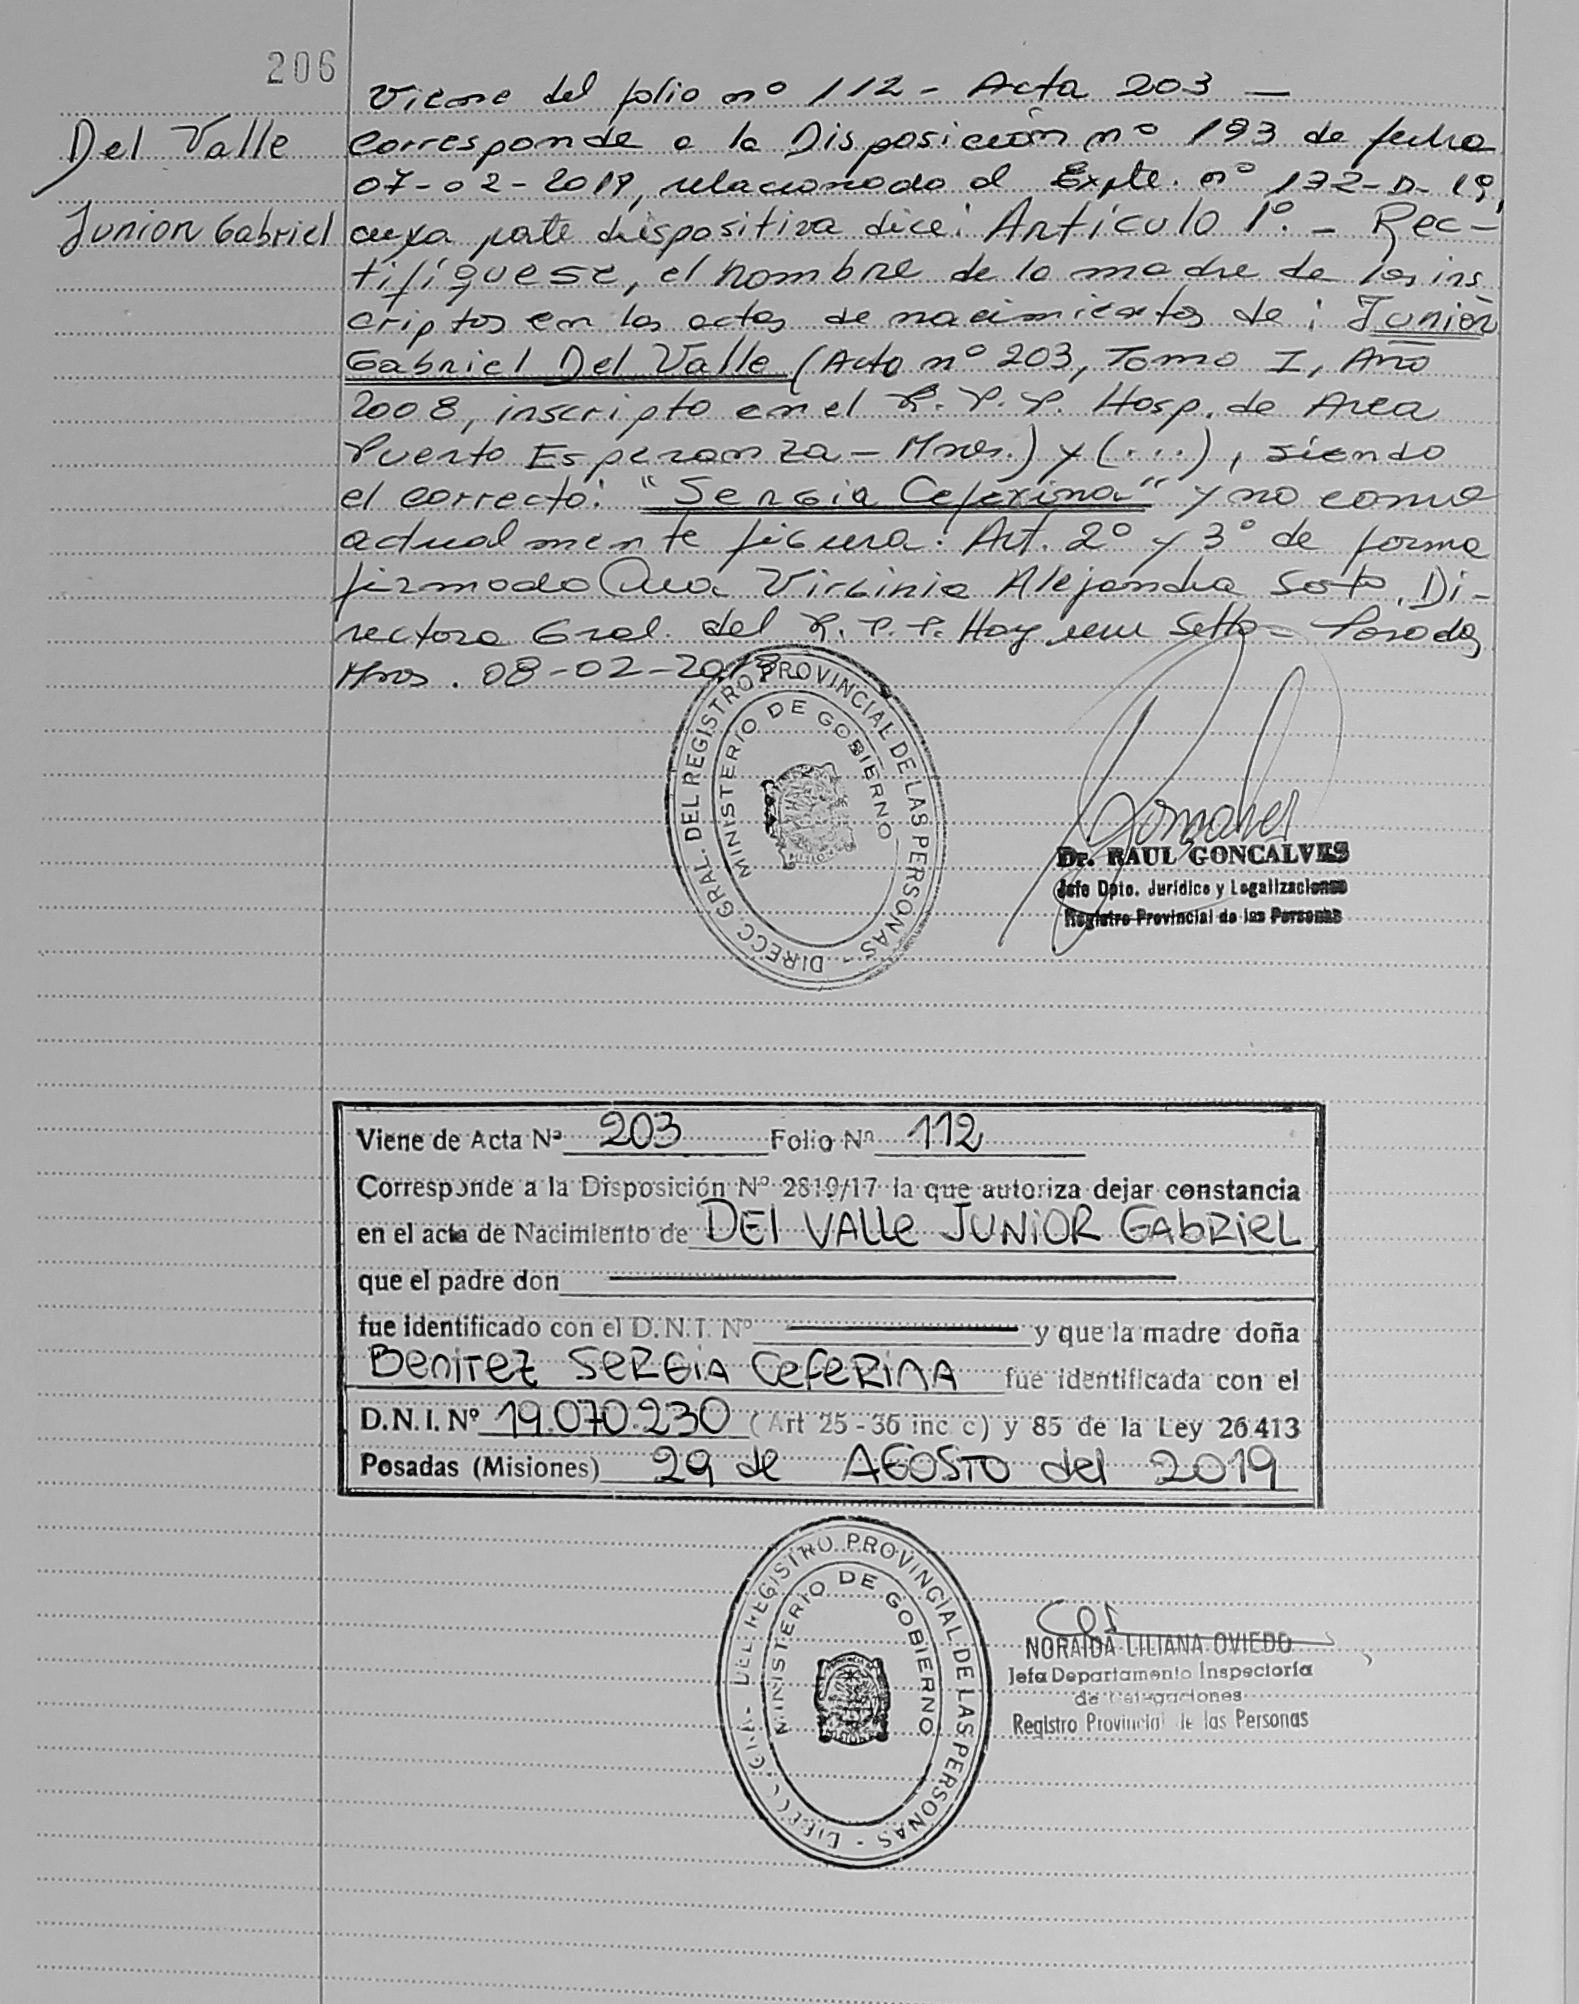 206
Viene del folio nº 112 - Acta 203 -
Del Valle
Junior Gabriel
corresponde a la Disposición nº 193 de fecha
07-02-2019, relacionado al Expte. nº 132-D-19,
cuya parte dispositiva dice: Artículo 1º. - Rec-
tifíquese, el nombre de la madre de los ins
criptos en las actas de nacimientos de: Junior
Gabriel Del Valle (Acta nº 203, Tomo I, Año
2008, inscripto en el R.P.P. Hosp. de Area
Puerto Esperanza - Mnes.) y (...), siendo
el correcto: "Sergia Ceferina" y no como
actualmente figura. Art. 2º y 3º de forma
firmado Virginia Alejandra Soto. Di-
rectora Gral. del R.P.P. Hay un Sello - Posadas
Mnes. 08-02-2019
DIRECC. GRAL. DEL REGISTRO PROVINCIAL DE LAS PERSONAS -
MINISTERIO DE GOBIERNO
MISIONES
Dr. RAUL GONCALVES
Jefe Dpto. Jurídico y Legalizaciones
Registro Provincial de las Personas
Viene de Acta Nº 203 Folio Nº 112
Corresponde a la Disposición Nº 2819/17 la que autoriza dejar constancia
en el acta de Nacimiento de DEl VAlle JUNiOR GabRieL
que el padre don
fue identificado con el D.N.I. Nº y que la madre doña
BeniTez SeRGiA CefeRiNA fue identificada con el
D.N.I. Nº 19.070.230 (Art 25 - 36 inc c) y 85 de la Ley 26.413
Posadas (Misiones) 29 de AGOSTO del 2019
DIRECC. GRAL. DEL REGISTRO PROVINCIAL DE LAS PERSONAS -
MINISTERIO DE GOBIERNO
MISIONES
NORAIDA LILIANA OVIEDO
Jefa Departamento Inspectoría
de Delegaciones
Registro Provincial de las Personas